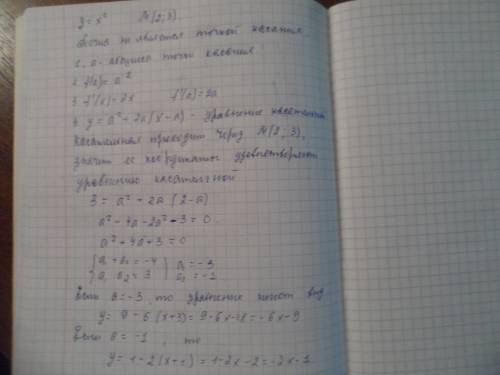 y = x² N(2; 3).
Точка не является точкой касания
1. a - абсцисса точки касания
2. f(a) = a²
3. f'(x) = 2x f'(a) = 2a
4. y = a² - 2a(x - a) - уравнение касательной
Касательная проходит через N(2; 3),
значит ее координаты удовлетворяют
уравнению касательной
3 = a² + 2a (2-a)
a² - 4a - 2a² + 3 = 0
a² + 4a + 3 = 0
a₁ + a₂ = -4 a₁ = -3
a₁ a₂ = 3 a₂ = -1
Если a = -3, то уравнение имеет вид
y = 9 - 6(x+3) = 9 - 6x - 18 = -6x - 9
Если a = -1, то
y = 1 - 2(x+1) = 1 - 2x - 2 = -2x - 1